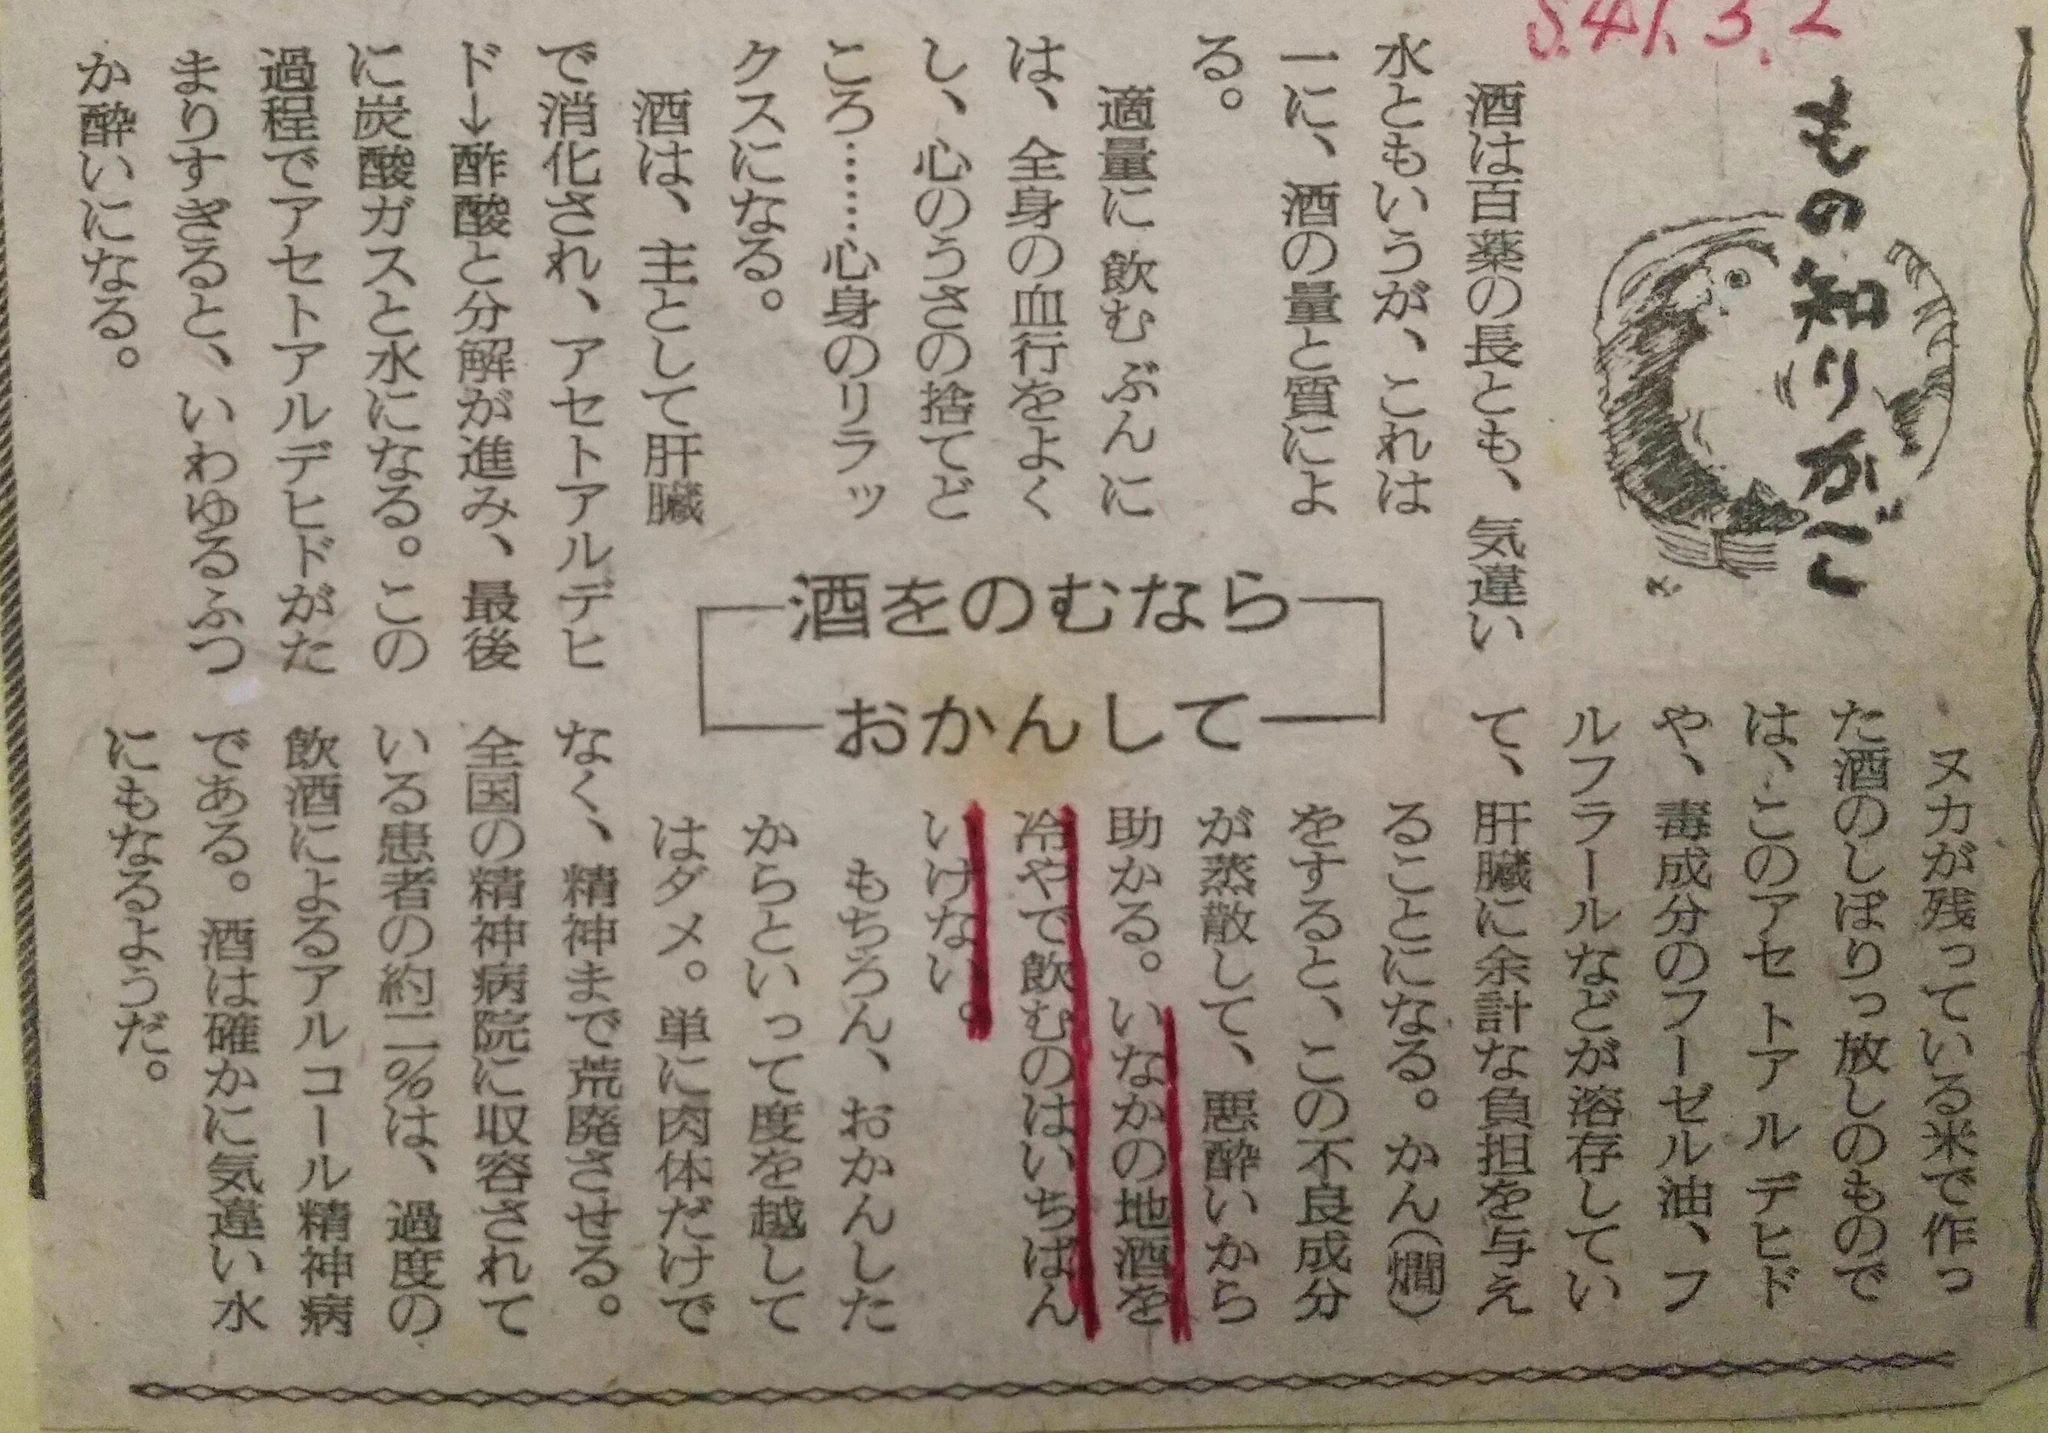 S.41.3.2
もの知りかご
酒は百薬の長とも、気違い
水ともいうが、これは
一に、酒の量と質によ
る。
適量に飲むぶんに
は、全身の血行をよく
し、心のうさの捨てど
ころ……心身のリラッ
クスになる。
酒は、主として肝臓
で消化され、アセトアルデヒ
ド→酢酸と分解が進み、最後
に炭酸ガスと水になる。この
過程でアセトアルデヒドがた
まりすぎると、いわゆるふつ
か酔いになる。
酒をのむなら
おかんして
ヌカが残っている米で作っ
た酒のしぼりっ放しのもので
は、このアセトアルデヒド
や、毒成分のフーゼル油、フ
ルフラールなどが溶存してい
て、肝臓に余計な負担を与え
ることになる。かん（燗）
をすると、この不良成分
が蒸散して、悪酔いから
助かる。いなかの地酒を
冷やで飲むのはいちばん
いけない。
もちろん、おかんした
からといって度を越して
はダメ。単に肉体だけで
なく、精神まで荒廃させる。
全国の精神病院に収容されて
いる患者の約二％は、過度の
飲酒によるアルコール精神病
である。酒は確かに気違い水
にもなるようだ。